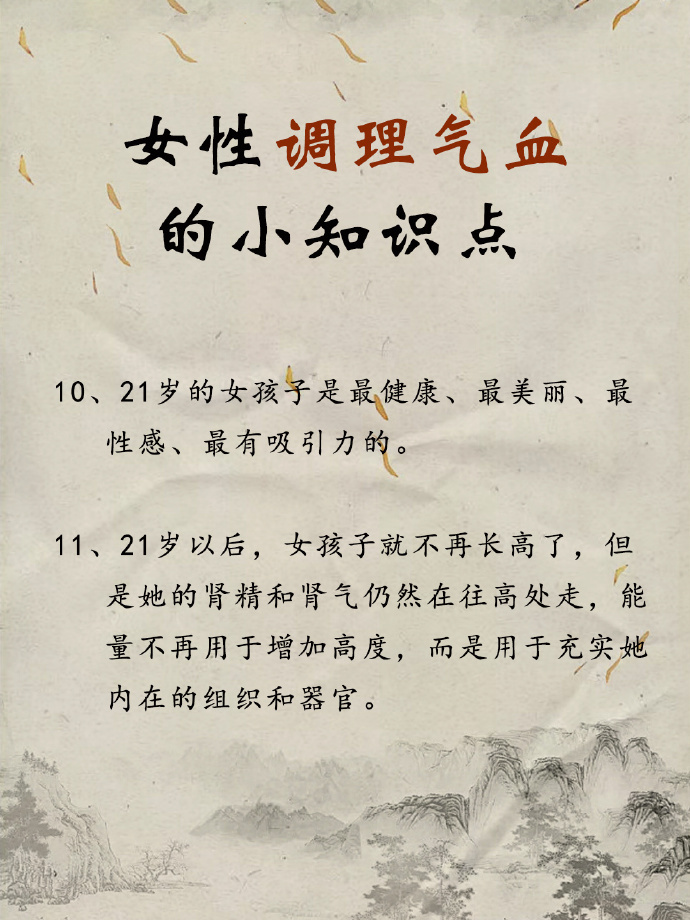 女性调理气血
的小知识点
10、21岁的女孩子是最健康、最美丽、最
性感、最有吸引力的。
11、21岁以后，女孩子就不再长高了，但
是她的肾精和肾气仍然在往高处走，能
量不再用于增加高度，而是用于充实她
内在的组织和器官。